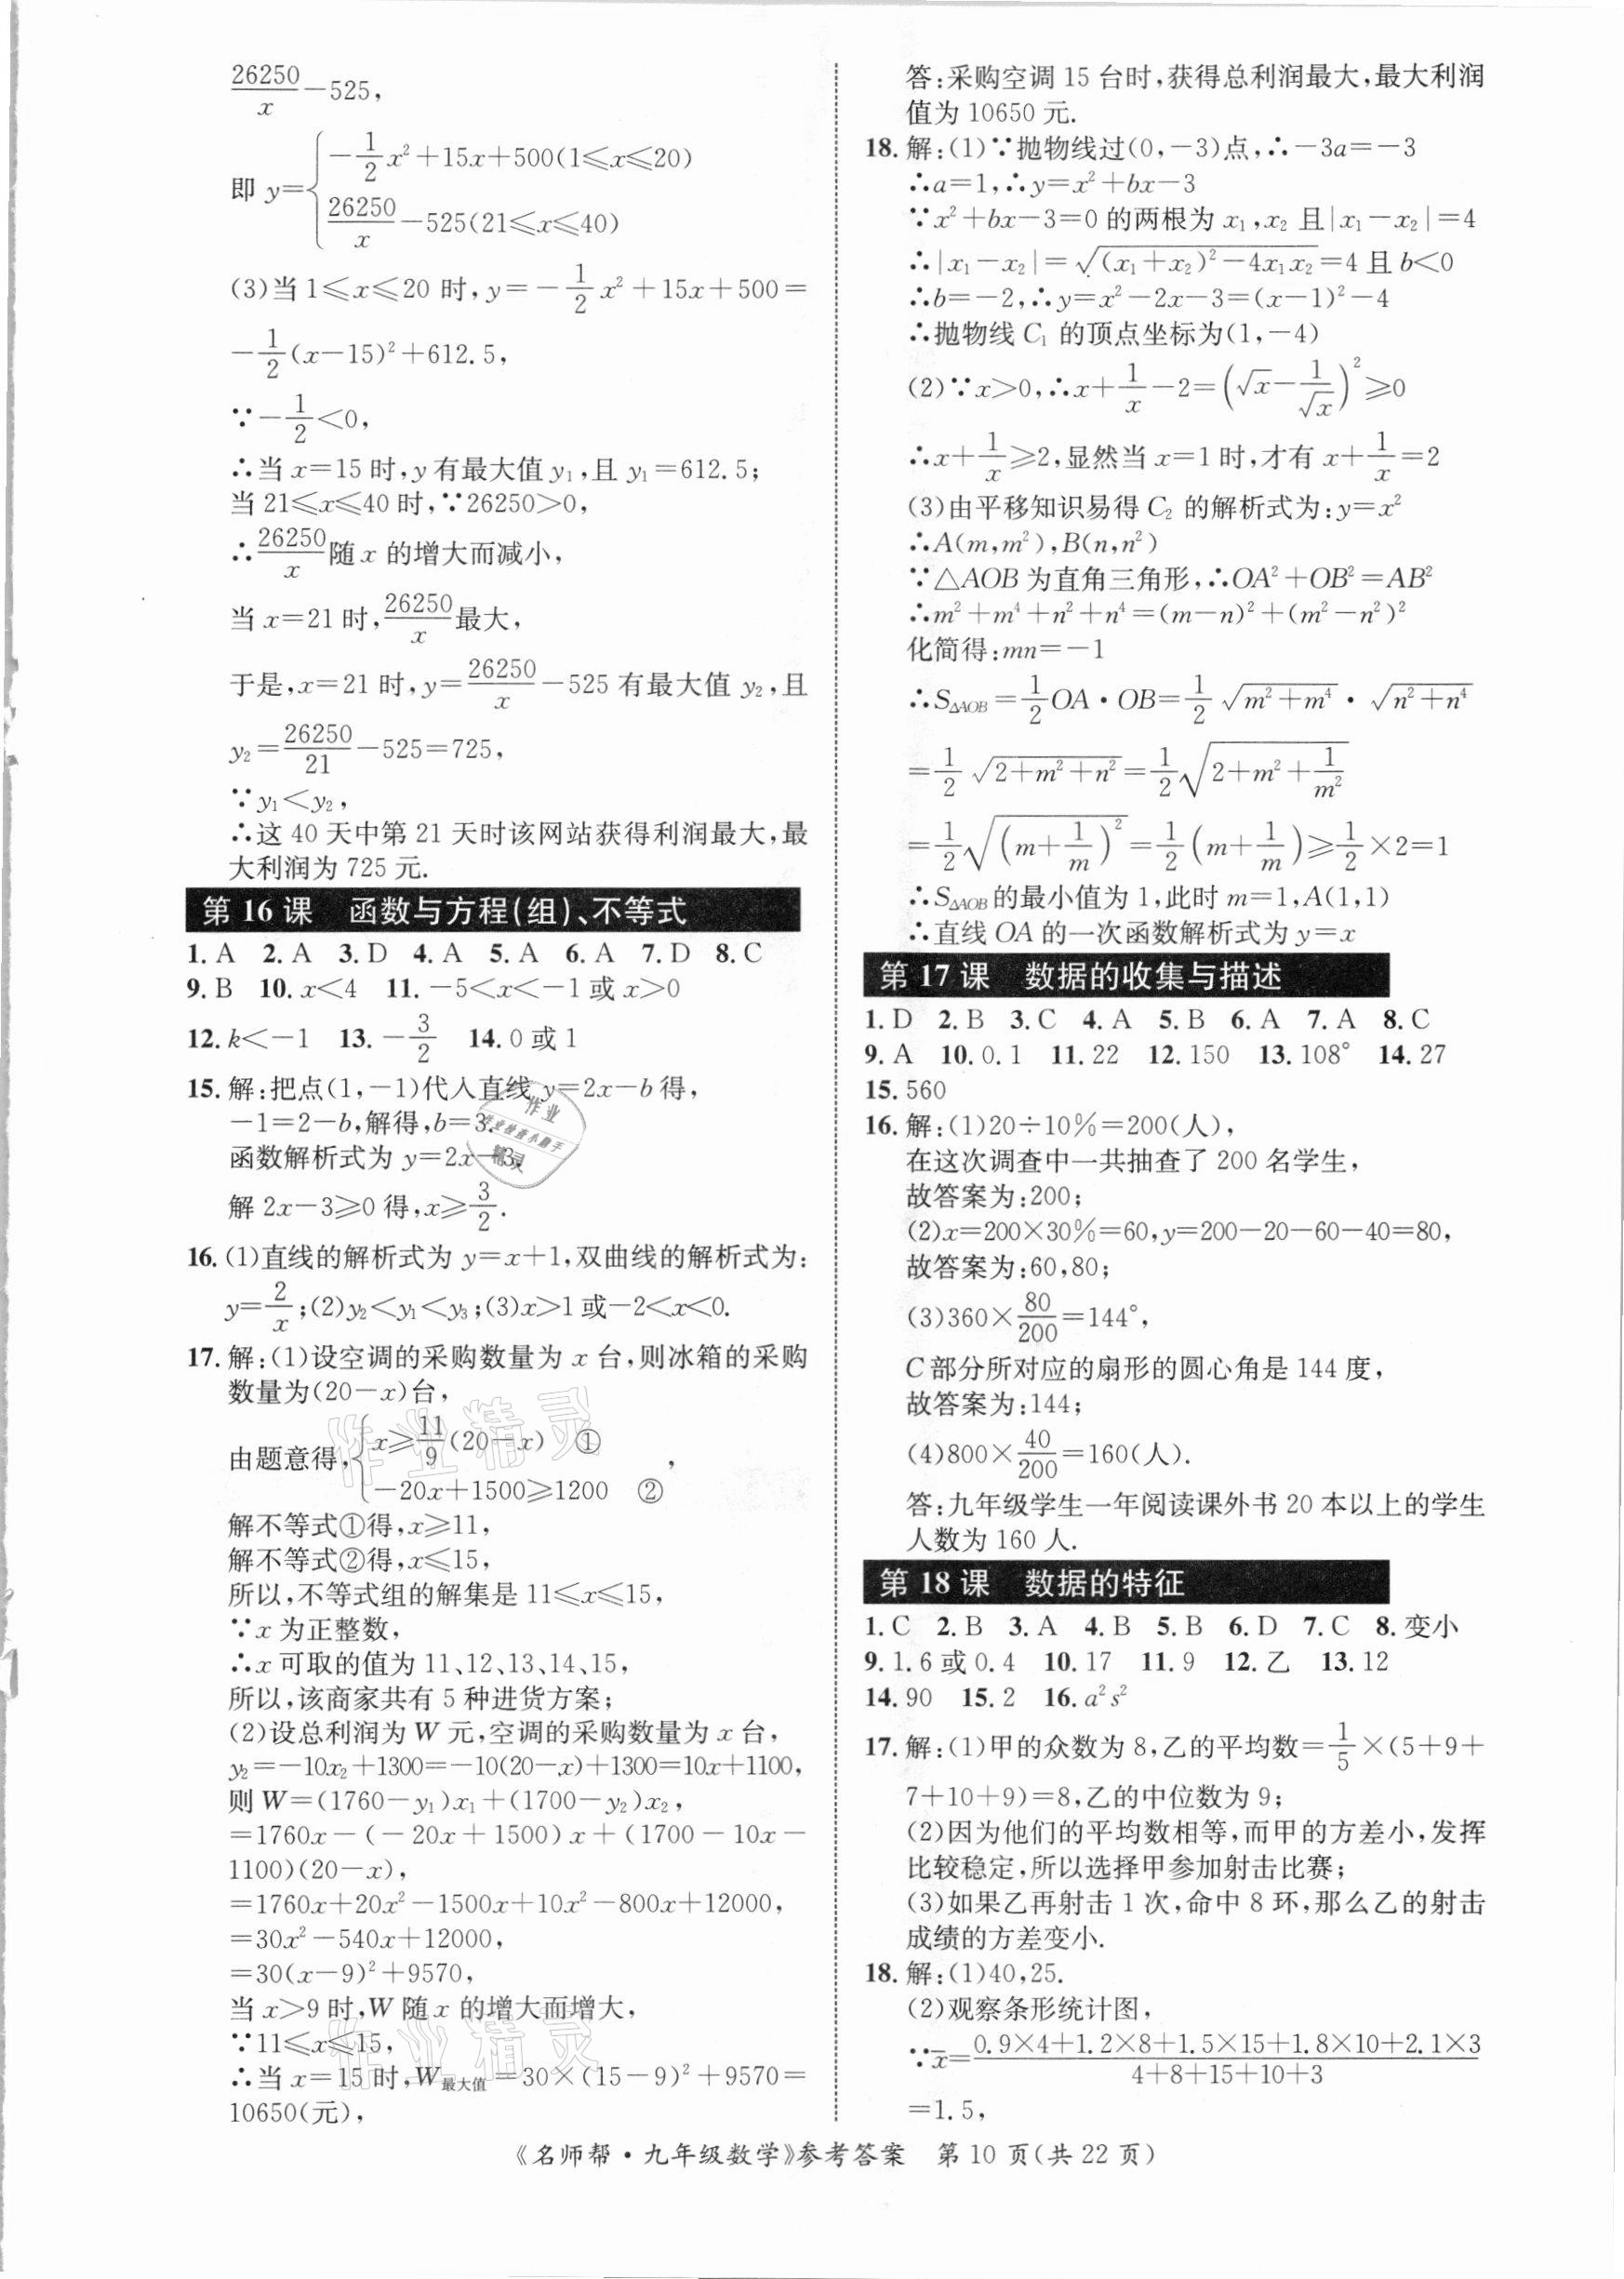 26250/x−525,
即 y={−1/2x²+15x+500(1⩽x⩽20)
26250/x−525(21⩽x⩽40)
(3)当 1⩽x⩽20 时,y=−1/2x²+15x+500=
−1/2(x−15)²+612.5,
∵−1/2<0,
∴当 x=15 时,y 有最大值 y₁,且 y₁=612.5;
当 21⩽x⩽40 时,∵26250>0,
∴26250/x随 x 的增大而减小,
当 x=21 时,26250/x最大,
于是,x=21 时,y=26250/x−525 有最大值 y₂,且
y₂=26250/21−525=725,
∵y₁<y₂,
∴这 40 天中第 21 天时该网站获得利润最大,最
大利润为 725 元.
第 16 课 函数与方程(组)、不等式
1. A 2. A 3. D 4. A 5. A 6. A 7. D 8. C
9. B 10. x<4 11. −5<x<−1 或 x>0
12. k<−1 13. −3/2 14. 0 或 1
15. 解:把点(1,−1)代入直线 y=2x−b 得,
−1=2−b,解得,b=3.
函数解析式为 y=2x−3,
解 2x−3⩾0 得,x⩾3/2.
16. (1)直线的解析式为 y=x+1,双曲线的解析式为:
y=2/x;(2)y₂<y₁<y₃;(3)x>1 或−2<x<0.
17. 解:(1)设空调的采购数量为 x 台,则冰箱的采购
数量为(20−x)台,
由题意得,{x⩾11/9(20−x) ①
−20x+1500⩾1200 ②,
解不等式①得,x⩾11,
解不等式②得,x⩽15,
所以,不等式组的解集是 11⩽x⩽15,
∵x 为正整数,
∴x 可取的值为 11、12、13、14、15,
所以,该商家共有 5 种进货方案;
(2)设总利润为 W 元,空调的采购数量为 x 台,
y₂=−10x₂+1300=−10(20−x)+1300=10x+1100,
则 W=(1760−y₁)x₁+(1700−y₂)x₂,
=1760x−(−20x+1500)x+(1700−10x−
1100)(20−x),
=1760x+20x²−1500x+10x²−800x+12000,
=30x²−540x+12000,
=30(x−9)²+9570,
当 x>9 时,W 随 x 的增大而增大,
∵11⩽x⩽15,
∴当 x=15 时,W最大值=30×(15−9)²+9570=
10650(元),
答:采购空调 15 台时,获得总利润最大,最大利润
值为 10650 元.
18. 解:(1)∵抛物线过(0,−3)点,∴−3a=−3
∴a=1,∴y=x²+bx−3
∵x²+bx−3=0 的两根为 x₁,x₂ 且|x₁−x₂|=4
∴|x₁−x₂|=√((x₁+x₂)²−4x₁x₂)=4 且 b<0
∴b=−2,∴y=x²−2x−3=(x−1)²−4
∴抛物线 C₁ 的顶点坐标为(1,−4)
(2)∵x>0,∴x+1/x−2=(√x−1/√x)²⩾0
∴x+1/x⩾2,显然当 x=1 时,才有 x+1/x=2
(3)由平移知识易得 C₂ 的解析式为:y=x²
∴A(m,m²),B(n,n²)
∵△AOB 为直角三角形,∴OA²+OB²=AB²
∴m²+m⁴+n²+n⁴=(m−n)²+(m²−n²)²
化简得:mn=−1
∴S△AOB=1/2OA·OB=1/2√(m²+m⁴)·√(n²+n⁴)
=1/2√(2+m²+n²)=1/2√(2+m²+1/m²)
=1/2√((m+1/m)²)=1/2(m+1/m)⩾1/2×2=1
∴S△AOB的最小值为 1,此时 m=1,A(1,1)
∴直线 OA 的一次函数解析式为 y=x
第 17 课 数据的收集与描述
1. D 2. B 3. C 4. A 5. B 6. A 7. A 8. C
9. A 10. 0.1 11. 22 12. 150 13. 108° 14. 27
15. 560
16. 解:(1)20÷10%=200(人),
在这次调查中一共抽查了 200 名学生,
故答案为:200;
(2)x=200×30%=60,y=200−20−60−40=80,
故答案为:60,80;
(3)360×80/200=144°,
C 部分所对应的扇形的圆心角是 144 度,
故答案为:144;
(4)800×40/200=160(人).
答:九年级学生一年阅读课外书 20 本以上的学生
人数为 160 人.
第 18 课 数据的特征
1. C 2. B 3. A 4. B 5. B 6. D 7. C 8. 变小
9. 1.6 或 0.4 10. 17 11. 9 12. 乙 13. 12
14. 90 15. 2 16. a²s²
17. 解:(1)甲的众数为 8,乙的平均数=1/5×(5+9+
7+10+9)=8,乙的中位数为 9;
(2)因为他们的平均数相等,而甲的方差小,发挥
比较稳定,所以选择甲参加射击比赛;
(3)如果乙再射击 1 次,命中 8 环,那么乙的射击
成绩的方差变小.
18. 解:(1)40,25.
(2)观察条形统计图,
∵x̄=(0.9×4+1.2×8+1.5×15+1.8×10+2.1×3)/(4+8+15+10+3)
=1.5,
《名师帮·九年级数学》参考答案 第 10 页(共 22 页)
作业
作业检查小助手
精灵
作业精灵
作业精灵